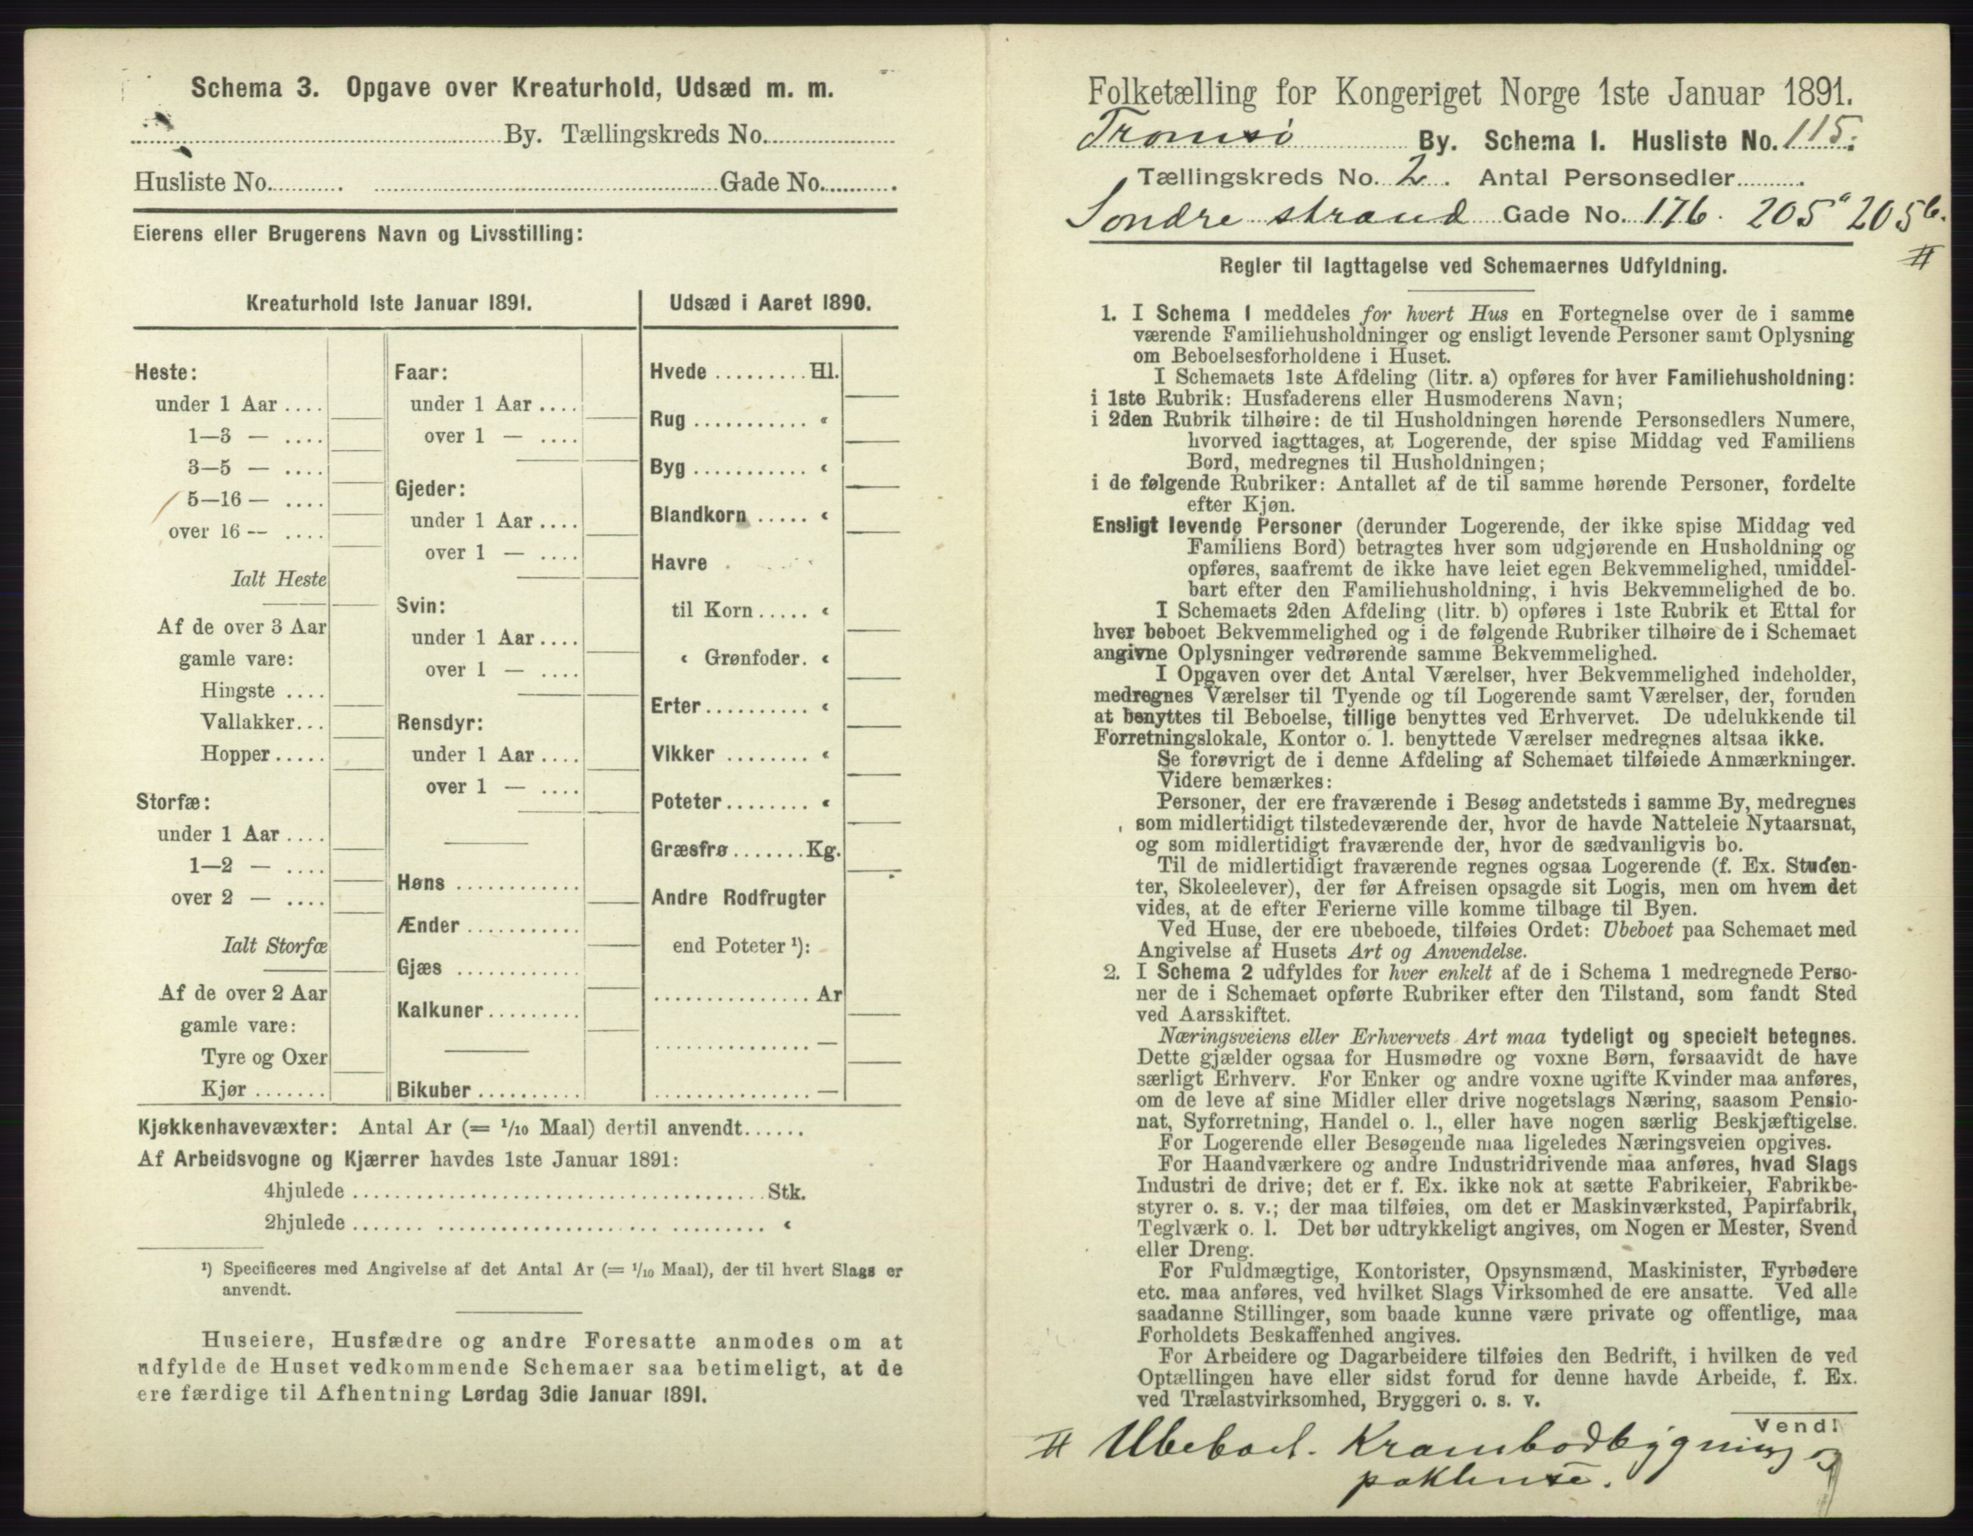 Schema 3. Opgave over Kreaturhold, Udsæd m. m.
By. Tællingskreds No.
Husliste No. Gade No.
Eierens eller Brugerens Navn og Livsstilling:
Kreaturhold 1ste Januar 1891.
Heste:
under 1 Aar
1—3 —
3—5 —
5—16 —
over 16 —
Ialt Heste
Af de over 3 Aar
gamle vare:
Hingste
Vallakker
Hopper
Storfæ:
under 1 Aar
1—2 —
over 2 —
Ialt Storfæ
Af de over 2 Aar
gamle vare:
Tyre og Oxer
Kjør
Faar:
under 1 Aar
over 1 —
Gjeder:
under 1 Aar
over 1 —
Svin:
under 1 Aar
over 1 —
Rensdyr:
under 1 Aar
over 1 —
Høns
Ænder
Gjæs
Kalkuner
Bikuber
Udsæd i Aaret 1890.
Hvede Hl.
Rug «
Byg «
Blandkorn «
Havre
til Korn «
« Grønfoder. «
Erter «
Vikker «
Poteter «
Græsfrø Kg.
Andre Rodfrugter
end Poteter ¹):
Ar
—
—
Kjøkkenhavevæxter: Antal Ar (= 1/10 Maal) dertil anvendt
Af Arbeidsvogne og Kjærrer havdes 1ste Januar 1891:
4hjulede Stk.
2hjulede «
¹) Specificeres med Angivelse af det Antal Ar (= 1/10 Maal), der til hvert Slags er
anvendt.
Huseiere, Husfædre og andre Foresatte anmodes om at
udfylde de Huset vedkommende Schemaer saa betimeligt, at de
ere færdige til Afhentning Lørdag 3die Januar 1891.
Folketælling for Kongeriget Norge 1ste Januar 1891.
Tromsø By. Schema 1. Husliste No. 115.
Tællingskreds No. 2. Antal Personsedler
Søndre strand Gade No. 176. 205a 205b.
#
Regler til Iagttagelse ved Schemaernes Udfyldning.
1. I Schema 1 meddeles for hvert Hus en Fortegnelse over de i samme
værende Familiehusholdninger og ensligt levende Personer samt Oplysning
om Beboelsesforholdene i Huset.
I Schemaets 1ste Afdeling (litr. a) opføres for hver Familiehusholdning:
i 1ste Rubrik: Husfaderens eller Husmoderens Navn;
i 2den Rubrik tilhøire: de til Husholdningen hørende Personsedlers Numere,
hvorved iagttages, at Logerende, der spise Middag ved Familiens
Bord, medregnes til Husholdningen;
i de følgende Rubriker: Antallet af de til samme hørende Personer, fordelte
efter Kjøn.
Ensligt levende Personer (derunder Logerende, der ikke spise Middag ved
Familiens Bord) betragtes hver som udgjørende en Husholdning og
opføres, saafremt de ikke have leiet egen Bekvemmelighed, umiddel-
bart efter den Familiehusholdning, i hvis Bekvemmelighed de bo.
I Schemaets 2den Afdeling (litr. b) opføres i 1ste Rubrik et Ettal for
hver beboet Bekvemmelighed og i de følgende Rubriker tilhøire de i Schemaet
angivne Oplysninger vedrørende samme Bekvemmelighed.
I Opgaven over det Antal Værelser, hver Bekvemmelighed indeholder,
medregnes Værelser til Tyende og til Logerende samt Værelser, der, foruden
at benyttes til Beboelse, tillige benyttes ved Erhvervet. De udelukkende til
Forretningslokale, Kontor o. l. benyttede Værelser medregnes altsaa ikke.
Se forøvrigt de i denne Afdeling af Schemaet tilføiede Anmærkninger.
Videre bemærkes:
Personer, der ere fraværende i Besøg andetsteds i samme By, medregnes
som midlertidigt tilstedeværende der, hvor de havde Natteleie Nytaarsnat,
og som midlertidigt fraværende der, hvor de sædvanligvis bo.
Til de midlertidigt fraværende regnes ogsaa Logerende (f. Ex. Studen-
ter, Skoleelever), der før Afreisen opsagde sit Logis, men om hvem det
vides, at de efter Ferierne ville komme tilbage til Byen.
Ved Huse, der ere ubeboede, tilføies Ordet: Ubeboet paa Schemaet med
Angivelse af Husets Art og Anvendelse.
2. I Schema 2 udfyldes for hver enkelt af de i Schema 1 medregnede Perso-
ner de i Schemaet opførte Rubriker efter den Tilstand, som fandt Sted
ved Aarsskiftet.
Næringsveiens eller Erhvervets Art maa tydeligt og specielt betegnes.
Dette gjælder ogsaa for Husmødre og voxne Børn, forsaavidt de have
særligt Erhverv. For Enker og andre voxne ugifte Kvinder maa anføres,
om de leve af sine Midler eller drive nogetslags Næring, saasom Pensio-
nat, Syforretning, Handel o. l., eller have nogen særlig Beskjæftigelse.
For Logerende eller Besøgende maa ligeledes Næringsveien opgives.
For Haandværkere og andre Industridrivende maa anføres, hvad Slags
Industri de drive; det er f. Ex. ikke nok at sætte Fabrikeier, Fabrikbe-
styrer o. s. v.; der maa tilføies, om det er Maskinværksted, Papirfabrik,
Teglværk o. l. Det bør udtrykkeligt angives, om Nogen er Mester, Svend
eller Dreng.
For Fuldmægtige, Kontorister, Opsynsmænd, Maskinister, Fyrbødere
etc. maa anføres, ved hvilket Slags Virksomhed de ere ansatte. Ved alle
saadanne Stillinger, som baade kunne være private og offentlige, maa
Forholdets Beskaffenhed angives.
For Arbeidere og Dagarbeidere tilføies den Bedrift, i hvilken de ved
Optællingen have eller sidst forud for denne havde Arbeide, f. Ex.
ved Trælastvirksomhed, Bryggeri o. s. v.
Vend!
# Ubeboet. Krambodbygning og
pakhuse.